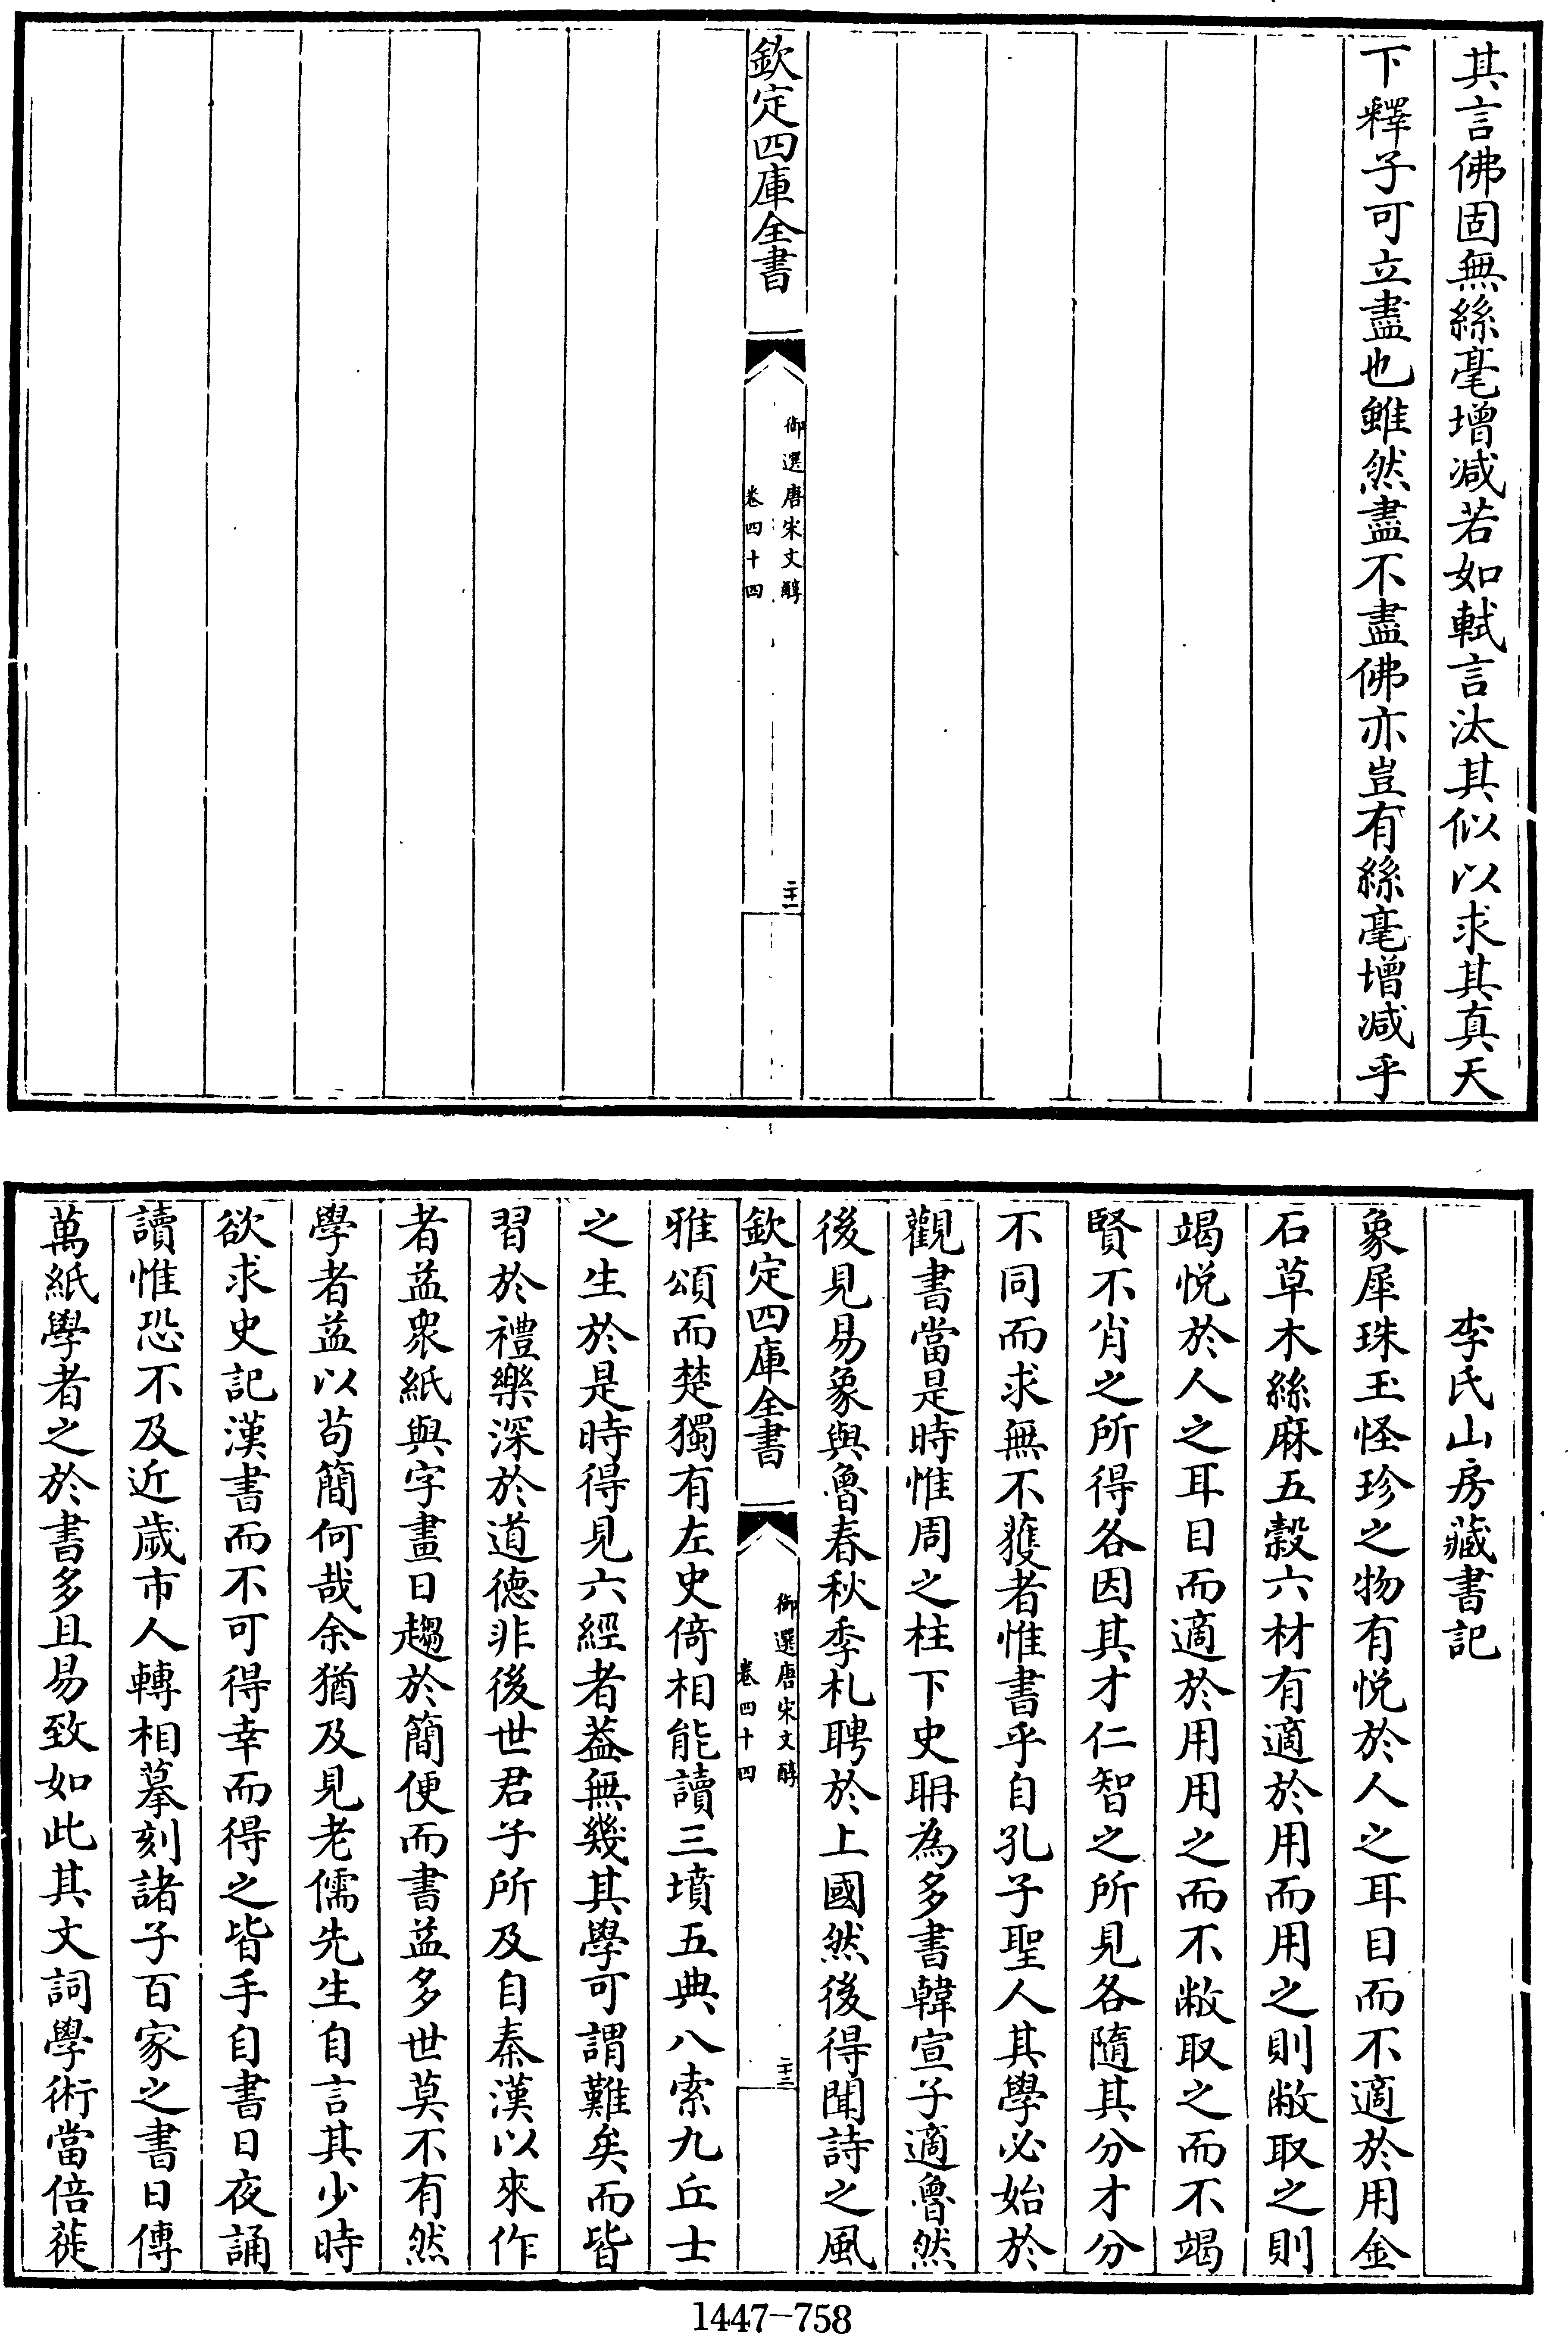 其言佛固無絲毫增减若如軾言汰其似以求其真天
下釋子可立盡也雖然盡不盡佛亦豈有絲毫增减乎
欽定四庫全書
御選唐宋文醇
卷四十四
二十二
李氏山房藏書記
象犀珠玉怪珍之物有悦於人之耳目而不適於用金
石草木絲麻五穀六材有適於用而用之則敝取之則
竭悦於人之耳目而適於用用之而不敝取之而不竭
賢不肖之所得各因其才仁智之所見各隨其分才分
不同而求無不獲者惟書乎自孔子聖人其學必始於
觀書當是時惟周之柱下史聃為多書韓宣子適魯然
後見易象與魯春秋季札聘於上國然後得聞詩之風
欽定四庫全書
御選唐宋文醇
卷四十四
二十三
雅頌而楚獨有左史倚相能讀三墳五典八索九丘士
之生於是時得見六經者葢無幾其學可謂難矣而皆
習於禮樂深於道德非後世君子所及自秦漢以來作
者益衆紙與字畫日趨於簡便而書益多世莫不有然
學者益以苟簡何哉余猶及見老儒先生自言其少時
欲求史記漢書而不可得幸而得之皆手自書日夜誦
讀惟恐不及近歲市人轉相摹刻諸子百家之書日傳
萬紙學者之於書多且易致如此其文詞學術當倍蓰
1447-758